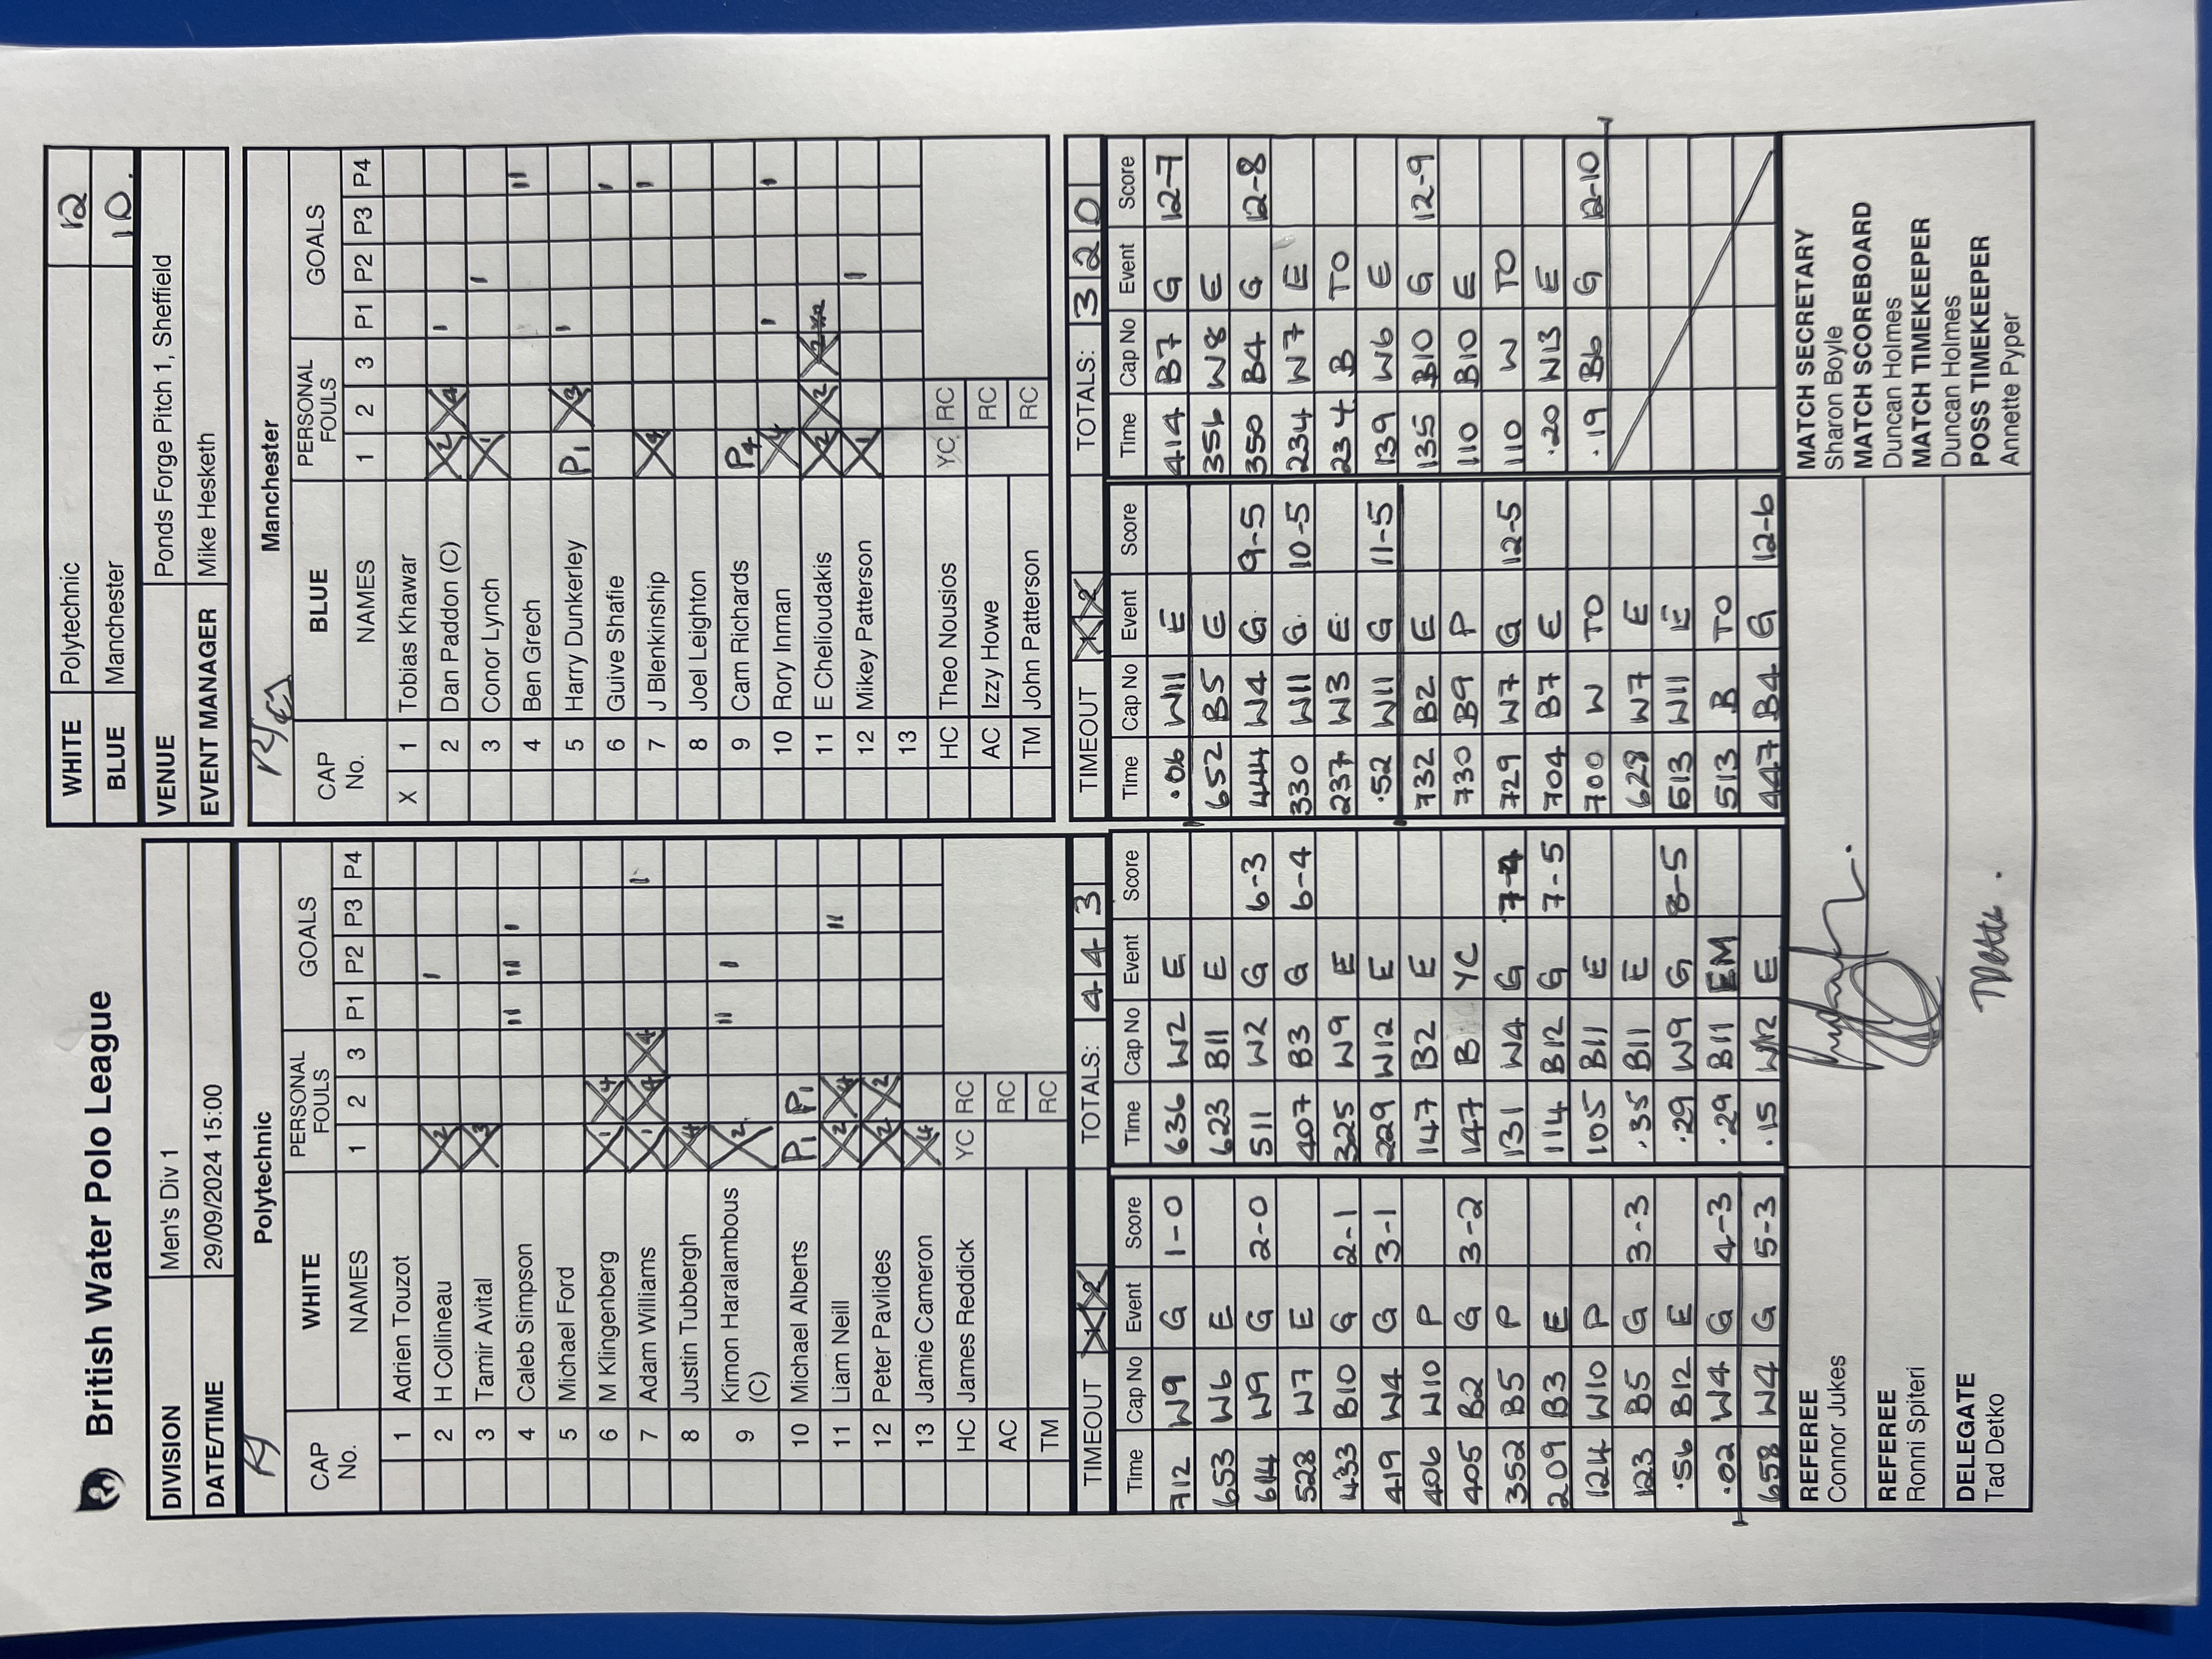 British Water Polo League
DIVISION Men's Div 1
DATE/TIME 29/09/2024 15:00
WHITE Polytechnic 12
BLUE Manchester 10.
VENUE Ponds Forge Pitch 1, Sheffield
EVENT MANAGER Mike Hesketh
Polytechnic
CAP No. WHITE NAMES PERSONAL FOULS 1 2 3 GOALS P1 P2 P3 P4
1 Adrien Touzot
2 H Collineau X2 I
3 Tamir Avital X3
4 Caleb Simpson II II I
5 Michael Ford
6 M Klingenberg X1 X4
7 Adam Williams X1 X4 X4 I
8 Justin Tubbergh X4
9 Kimon Haralambous (C) X2 II I
10 Michael Alberts P1 P1
11 Liam Neill X2 X4 II
12 Peter Pavlides X2 X2
13 Jamie Cameron X4
HC James Reddick YC RC
AC RC
TM RC
Manchester
CAP No. BLUE NAMES PERSONAL FOULS 1 2 3 GOALS P1 P2 P3 P4
X 1 Tobias Khawar
2 Dan Paddon (C) X2 X4 I
3 Connor Lynch X1 I
4 Ben Grech II
5 Harry Dunkerley P1 X3 I
6 Guive Shafie I
7 J Blenkinship X4 I
8 Joel Leighton
9 Cam Richards P4
10 Rory Inman X4 I I
11 E Chelioudakis X2 X2 X2
12 Mikey Patterson X1 II
13
HC Theo Nousios YC RC
AC Izzy Howe RC
TM John Patterson RC
TIMEOUT 1 2 TOTALS: 4 4 3
TIMEOUT 1 2 TOTALS: 3 2 0
Time Cap No Event Score
712 W9 G 1-0
653 W6 E
614 W9 G 2-0
528 W7 E
433 B10 G 2-1
419 W4 G 3-1
406 W10 P
405 B2 G 3-2
352 B5 P
209 B3 E
124 W10 P
123 B5 G 3-3
.56 B12 E
.02 W4 G 4-3
658 W4 G 5-3
Time Cap No Event Score
636 W2 E
623 B11 E
511 W2 G 6-3
407 B3 G 6-4
325 W9 E
229 W12 E
147 B2 E
147 B YC
131 W4 G 7-4
114 B12 G 7-5
105 B11 E
.35 B11 E
.29 W9 G 8-5
.29 B11 EM
.15 W12 E
Time Cap No Event Score
.06 W11 E
652 B5 E
444 W4 G 9-5
330 W11 G. 10-5
237 W3 E
.52 W11 G 11-5
732 B2 E
730 B9 P
729 W7 G 12-5
704 B7 E
700 W TO
628 W7 E
513 W11 E
513 B TO
447 B4 G 12-6
Time Cap No Event Score
414 B7 G 12-7
356 W8 E
350 B4 G 12-8
234 W7 E
234 B TO
139 W6 E
135 B10 G 12-9
110 B10 E
110 W TO
.20 W13 E
.19 B6 G 12-10
REFEREE
Connor Jukes
REFEREE
Ronni Spiteri
DELEGATE
Tad Detko
MATCH SECRETARY
Sharon Boyle
MATCH SCOREBOARD
Duncan Holmes
MATCH TIMEKEEPER
Duncan Holmes
POSS TIMEKEEPER
Annette Pyper